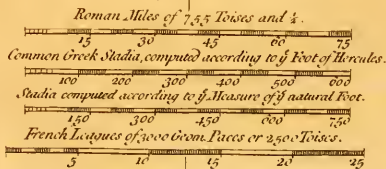 Roman Miles of 755 Toises and ¼.
15 30 45 60 75
Common Greek Stadia, computed according to yͤ Foot of Hercules.
100 200 300 400 500 600
Stadia computed according to yͤ Measure of yͤ natural Foot.
150 300 450 600 750
French Leagues of 3000 Geom. Paces or 2500 Toises.
5 10 15 20 25